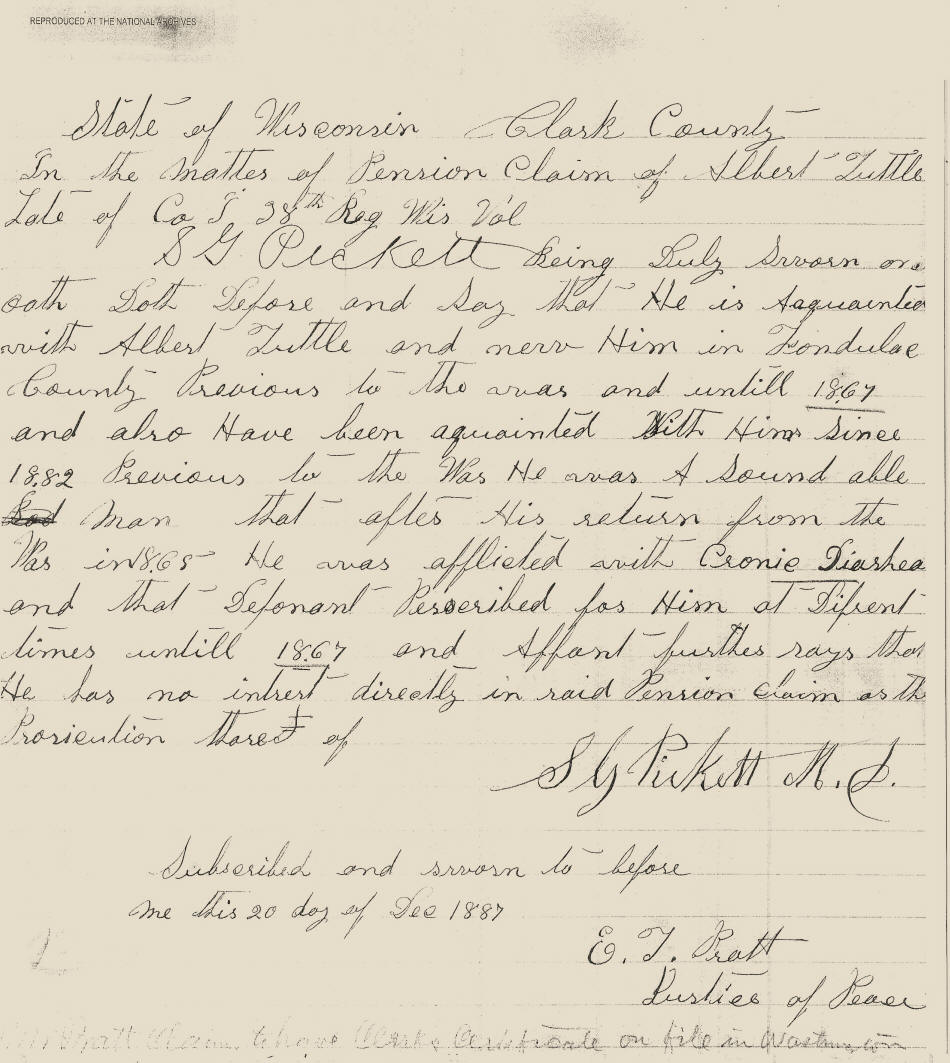 REPRODUCED AT THE NATIONAL ARCHIVES
State of Wisconsin Clark County
In the matter of Pension Claim of Albert Tuttle
Late of Co I 38th Reg Wis Vol
S G Pickett Being Duly Sworn on
oath Doth Depose and Say that He is Aaquainted
with Albert Tuttle and new Him in Fondulac
County Previous to the war and untill 1867
and also Have been aquainted With Him Since
1882 Previous to the War He was A Sound able
man that after His return from the
War in 1865 He was afflicted with Cronic Diarhea
and that Deponant Perscribed for Him at Difrent
times untill 1867 and Affiant further says that
He has no intrest directly in said Pension Claim or th
Prosicution of
S G Pickett M. D.
Subscribed and sworn to before
me this 20 day of Dec 1887
E. T. Pratt
Justice of Peace
Pratt Claims to have Clerks Certificate on file in Washington